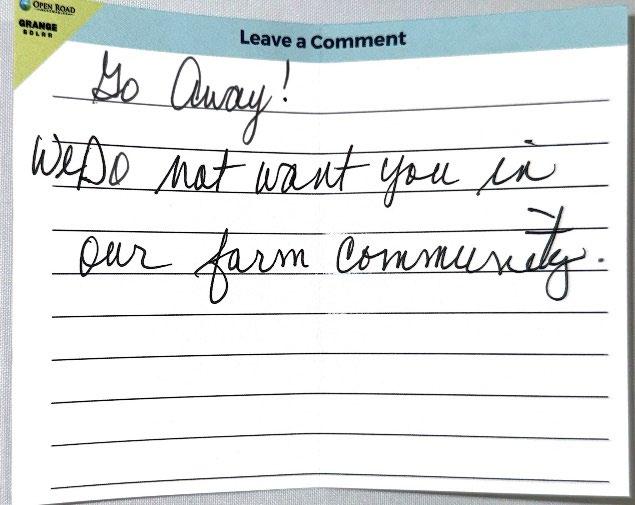 OPEN ROAD
GRANGE
SOLAR
Leave a Comment
Go Away!
We Do not want you in
our farm community.